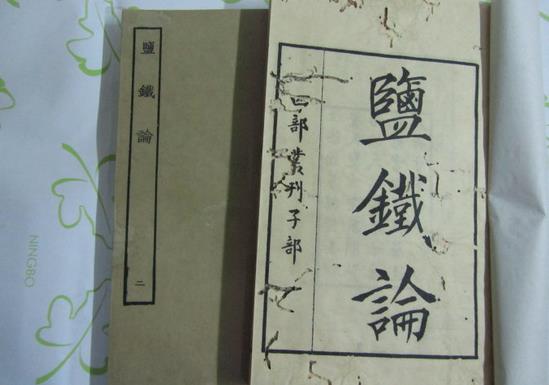 鹽鐵論
二
鹽鐵論
四部叢刊子部
NINGBO